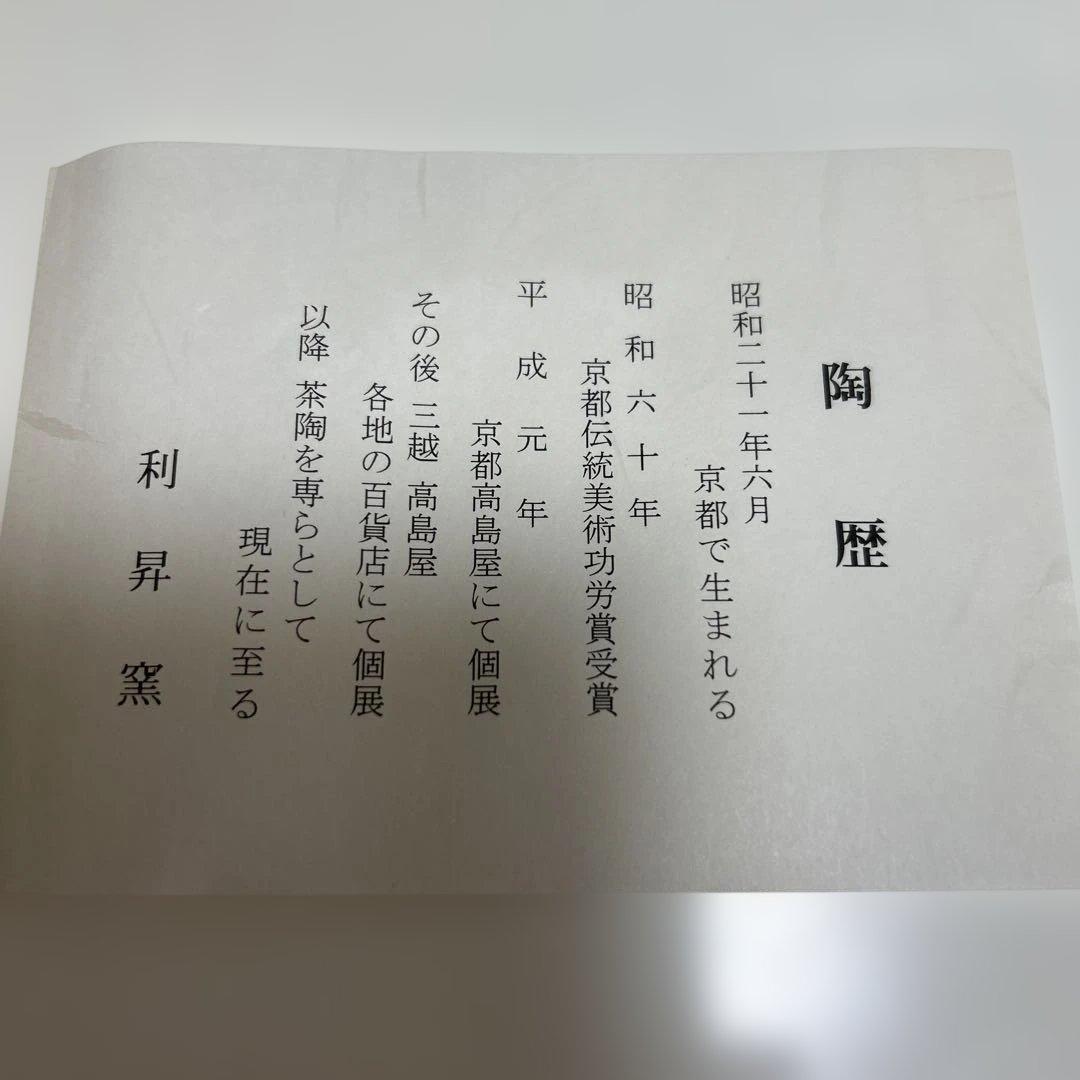 陶歴
昭和二十一年六月
京都で生まれる
昭和六十年
京都伝統美術功労賞受賞
平成元年
京都高島屋にて個展
その後 三越 高島屋
各地の百貨店にて個展
以降 茶陶を専らとして
現在に至る
利昇窯